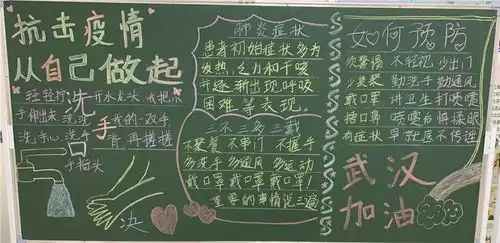 抗击疫情
从自己做起
轻轻拧开水龙头 我把小
手伸出来 洗洗我的一双手
洗手心 洗手背 再搓搓
手指头
洗手
诀
肺炎症状
患者初始症状多为
发热、乏力和干咳
并逐渐出现呼吸
困难等表现。
三不三多三戴
不聚餐 不串门 不握手
多洗手 多通风 多运动
戴口罩 戴口罩 戴口罩
重要的事情说三遍
如何预防
不轻视 少出门
勤洗手 勤通风
戴口罩 讲卫生 打喷嚏
捂口鼻 喷嚏后 慎揉眼
有症状 早就医 不传谣
武汉
加油